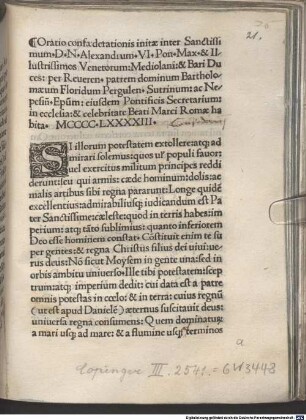 21.
¶Oratio confœderationis initæ inter Sanctissi
mum.D.N.Alexandrum.VI.Pon.Max.& Il
lustrissimos Venetorum: Mediolani: & Bari Du
ces: per Reueren. patrem dominum Bartholo
mæum Floridum Pergulen. Sutrinum: ac Ne
pesiñ. Epũm: eiusdem Pontificis Secretarium:
in ecclesia: & celebritate Beati Marci Romæ ha
bita. MCCCC.LXXXXIII.
SI illorum potestatem extollere: atq; ad
mirari solemus: quos uł populi fauor:
uel exercitus militum principes reddi
derunt: seu qui armis: cæde hominum: dolis: ac
malis artibus sibi regna pararunt: Longe quidẽ
excellentius: admirabiliusq; iudicandum est Pa
ter Sanctissime: cæleste: quod in terris habes: im
perium: atq; tãto sublimius: quanto inferiorem
Deo esse hominem constat. Cõstituit enim te su
per gentes: & regna Christus filius dei uiui: ue
rus deus: Nõ sicut Moysem in gente una: sed in
orbis ambitu uniuerso. Ille tibi potestatem: scep
trum: atq; imperium dedit: cui data est a patre
omnis potestas in cœlo: & in terra: cuius regnũ
(ut est apud Danielẽ) æternus suscitauit deus:
uniuersa regna consumens: Quem dominatur
a mari usq; ad mare: & a flumine usq; terminos
a
Copinger III. 2541. = GW 3443